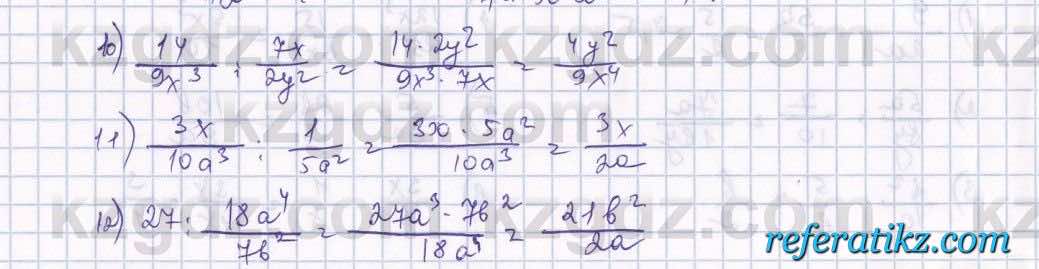 10) 14/9x³ : 7x/2y² = 14·2y²/9x³·7x = 4y²/9x⁴
11) 3x/10a³ : 1/5a² = 3x·5a²/10a³ = 3x/2a
12) 27 : 18a⁴/7b² = 27a³·7b²/18a⁴ = 21b²/2a
kzgdz.com
referatikz.com